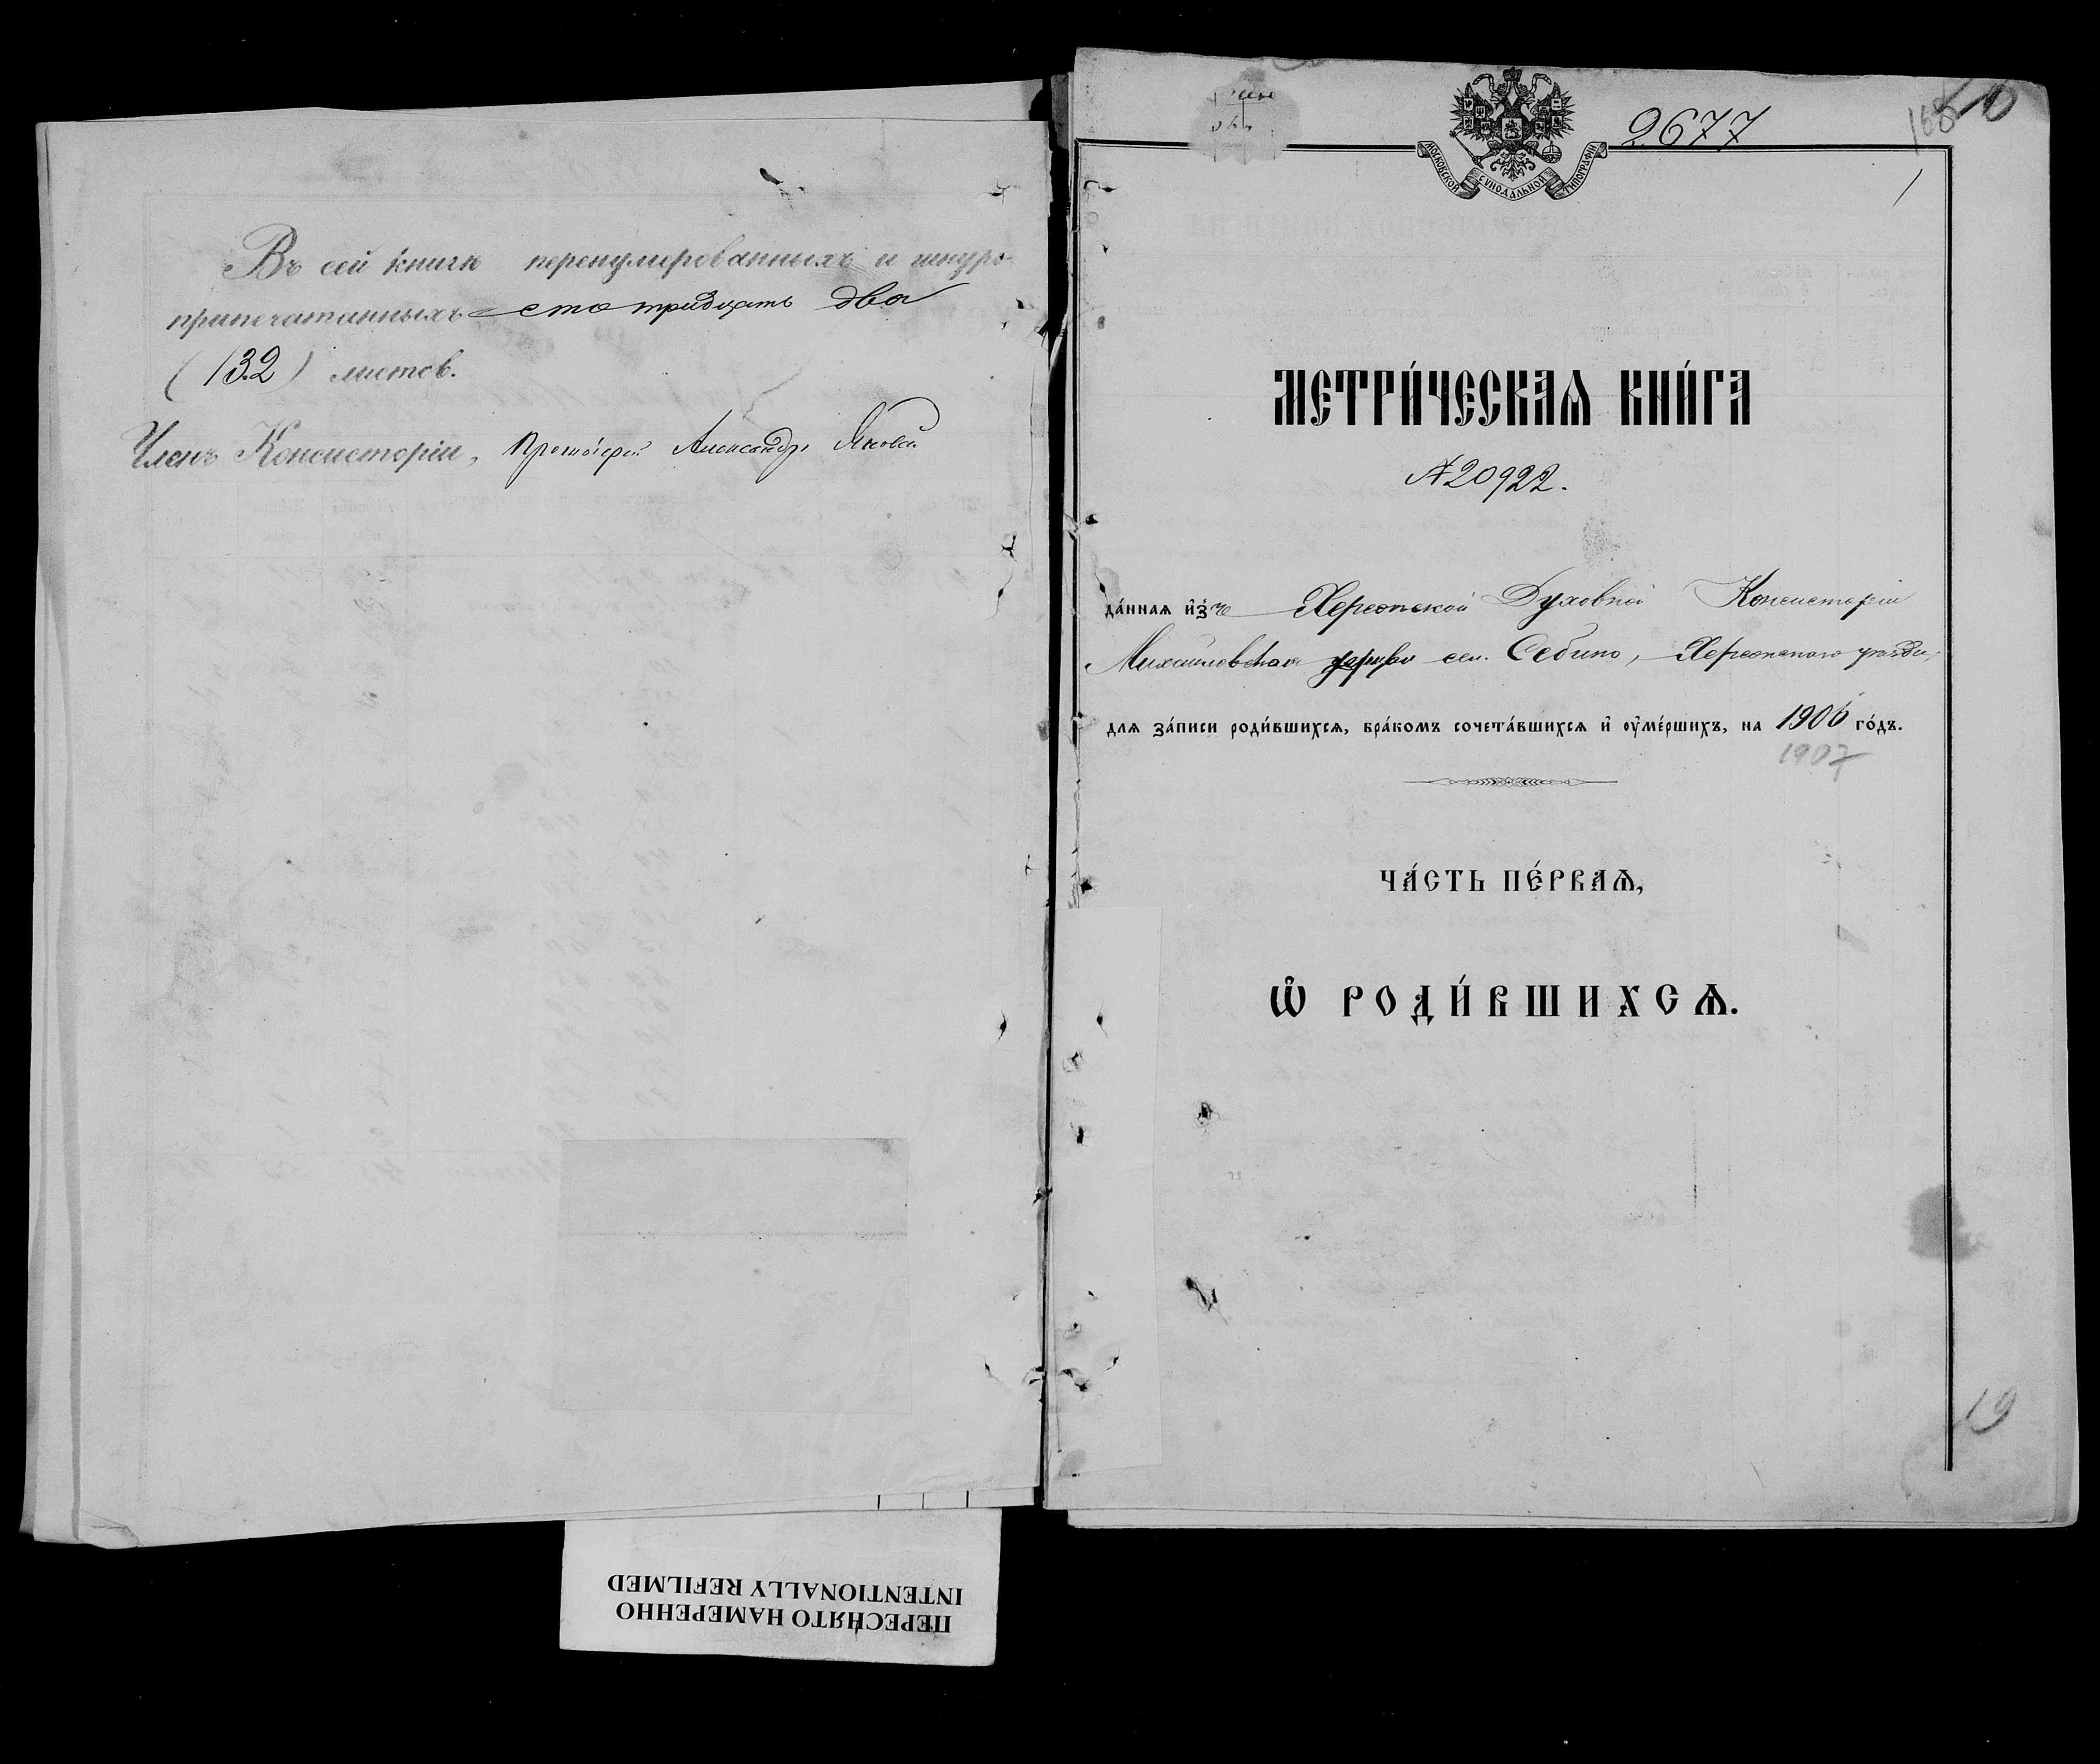 Въ сей книгѣ перенумерованныхъ и шнуро-
припечатанныхъ сто тридцать два
(132) листов.
Членъ Консисторіи, Протоіерей Александръ
2677
168
1
МОСКОВСКОЙ СѴНОДАЛЬНОЙ ТИПОГРАФІИ
МЕТРИ́ЧЕСКАѦ КНИ́ГА
№ 20922.
да́ннаѧ и҆зъ Херсонской Духовной Консисторіи
Михайловской церкви сел. Себино, Херсонскаго уѣзда,
длѧ за́писи роди́вшихсѧ, бра́комъ сочета́вшихсѧ и҆ оу҆ме́ршихъ, на 1906 го́дъ.
1907
ЧА́СТЬ ПЕ́РВАѦ,
Ѡ҆ РОДИ́ВШИХСѦ.
19
ПЕРЕСНЯТО НАМЕРЕННО
INTENTIONALLY REFILMED